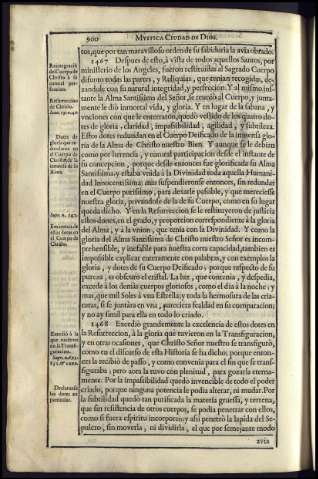 900 MYSTICA CIUDAD DE DIOS.
tos, que por tan maravilloso orden de su sabiduria la avia obrado.
1467 Despues de esto, à vista de todos aquellos Santos, por
ministerio de los Angeles, fueron restituìdas al Sagrado Cuerpo
difunto todas las partes, y Reliquias, que tenian recogidas, de-
xandole con su natural integridad, y perfeccion. Y al mismo ins-
tante la Alma Santissima del Señor, se reunìò al Cuerpo, y junta-
mente le diò inmortal vida, y gloria. Y en lugar de la sabana, y
unciones con que le enterraron, quedò vestido de los quatro do-
tes de gloria, claridad, impassibilidad, agilidad, y subtileza.
Estos dotes redundan en el Cuerpo Deificado de la inmensa glo-
ria de la Alma de Christo nuestro Bien. Y aunque se le debian
como por herencia, y natural participacion desde el instante de
su concepcion, porque desde entonces fue glorificada su Alma
Santissima, y estaba unida à la Divinidad toda aquella Humani-
dad Innocentissima; mas suspendieronse entonces, sin redundar
en el Cuerpo purissimo, para dexarle passible, y que mereciesse
nuestra gloria, privandose de la de su Cuerpo, como en su lugar
queda dicho. Y en la Resurreccion se le restituyeron de justicia
estos dotes, en el grado, y proporcion correspondiente à la gloria
del Alma, y à la union, que tenia con la Divinidad. Y como la
gloria del Alma Santissima de Christo nuestro Señor es incom-
prehensible, y inefable para nuestra corta capacidad, tambien es
impossible explicar enteramente con palabras, y con exemplos la
gloria, y dotes de su Cuerpo Deificado; porque respecto de su
pureza, es obscuro el cristal. La luz, que contenia, y despedia,
excede à los demàs cuerpos gloriosos, como el dia à la noche; y
mas, que mil Soles à una Estrella; y toda la hermosura de las cria-
turas, si se juntàra en una, pareciera fealdad en su comparacion;
y no ay simil para ella en todo lo criado.
1468 Excediò grandemente la excelencia de estos dotes en
la Resurreccion, à la gloria que tuvieron en la Transfiguracion,
y en otras ocasiones, que Christo Señor nuestro se transfigurò,
como en el discurso de esta Historia se ha dicho; porque enton-
ces la recibiò de passo, y como convenia para el fin que se transf-
figuraba; pero aora la tuvo con plenitud, para gozarla eterna-
mente. Por la impassibilidad quedò invencible de todo el poder
criado, porque ninguna potencia le podia alterar, ni mudar. Por
la subtilidad quedò tan purificada la materia gruessa, y terrena,
que sin resistencia de otros cuerpos, se podia penetrar con ellos,
como si fuera espiritu incorporeo; y assi penetrò la lapida del Se-
pulcro, sin moverla, ni dividirla, el que por semejante modo
avia
Resurreccion
de Christo
Dotes de
gloria